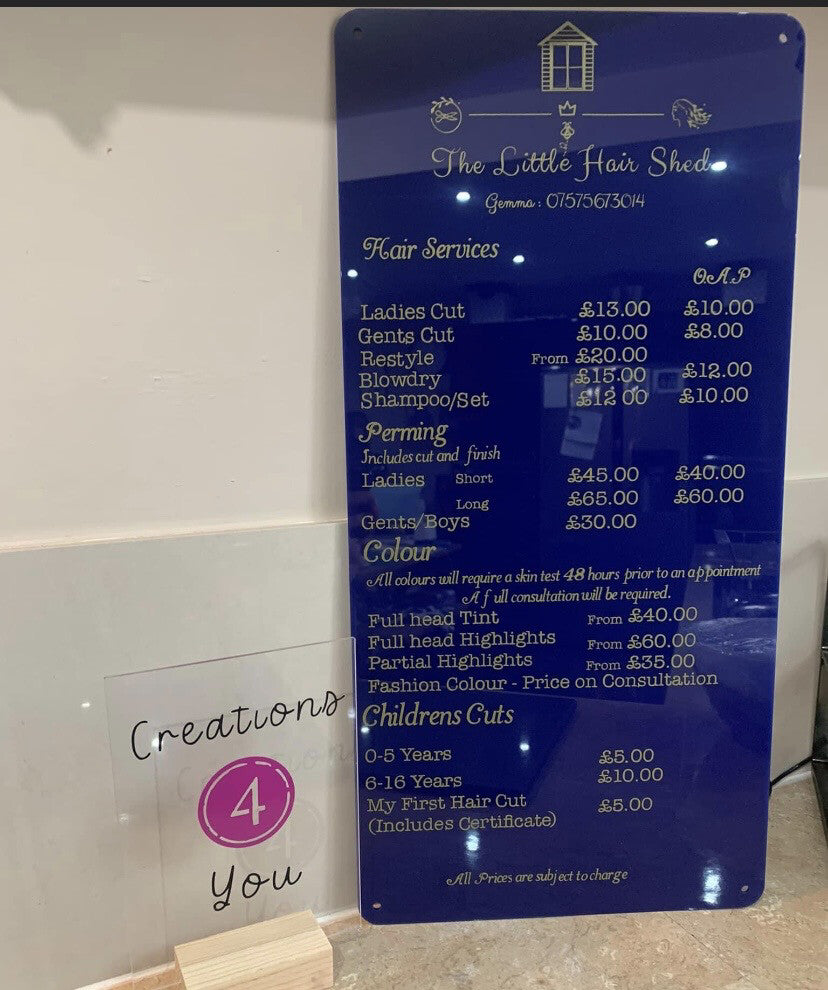 The Little Hair Shed
Gemma : 07575673014
Hair Services
O.A.P
Ladies Cut £13.00 £10.00
Gents Cut £10.00 £8.00
Restyle From £20.00
Blowdry £15.00 £12.00
Shampoo/Set £12 00 £10.00
Perming
Includes cut and finish
Ladies Short £45.00 £40.00
Long £65.00 £60.00
Gents/Boys £30.00
Colour
All colours will require a skin test 48 hours prior to an appointment
A full consultation will be required.
Full head Tint From £40.00
Full head Highlights From £60.00
Partial Highlights From £35.00
Fashion Colour - Price on Consultation
Childrens Cuts
0-5 Years £5.00
6-16 Years £10.00
My First Hair Cut £5.00
(Includes Certificate)
All Prices are subject to charge
Creations
4
You